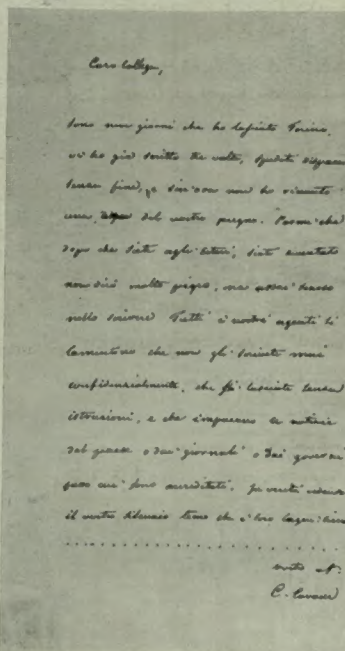 Caro Collega,
Sono nove giorni che ho lasciato Torino,
vi ho già scritto tre volte, spediti dispacci
senza fine, e sin ora non ho ricevuto
una del vostro pugno. Parmi che
dopo che siete agli esteri, siate diventato
non dirò molto pigro, ma assai
nello scrivere. Tutti i nostri agenti si
lamentano che non gli scrivete mai
confidenzialmente, che li lasciate senza
istruzioni, e che imparano le notizie
del paese o dai giornali o dai governi
presso cui sono accreditati. In verità
il vostro silenzio temo che i loro
. . . . . . . . . . . . . . . . . . . .
C. Cavour